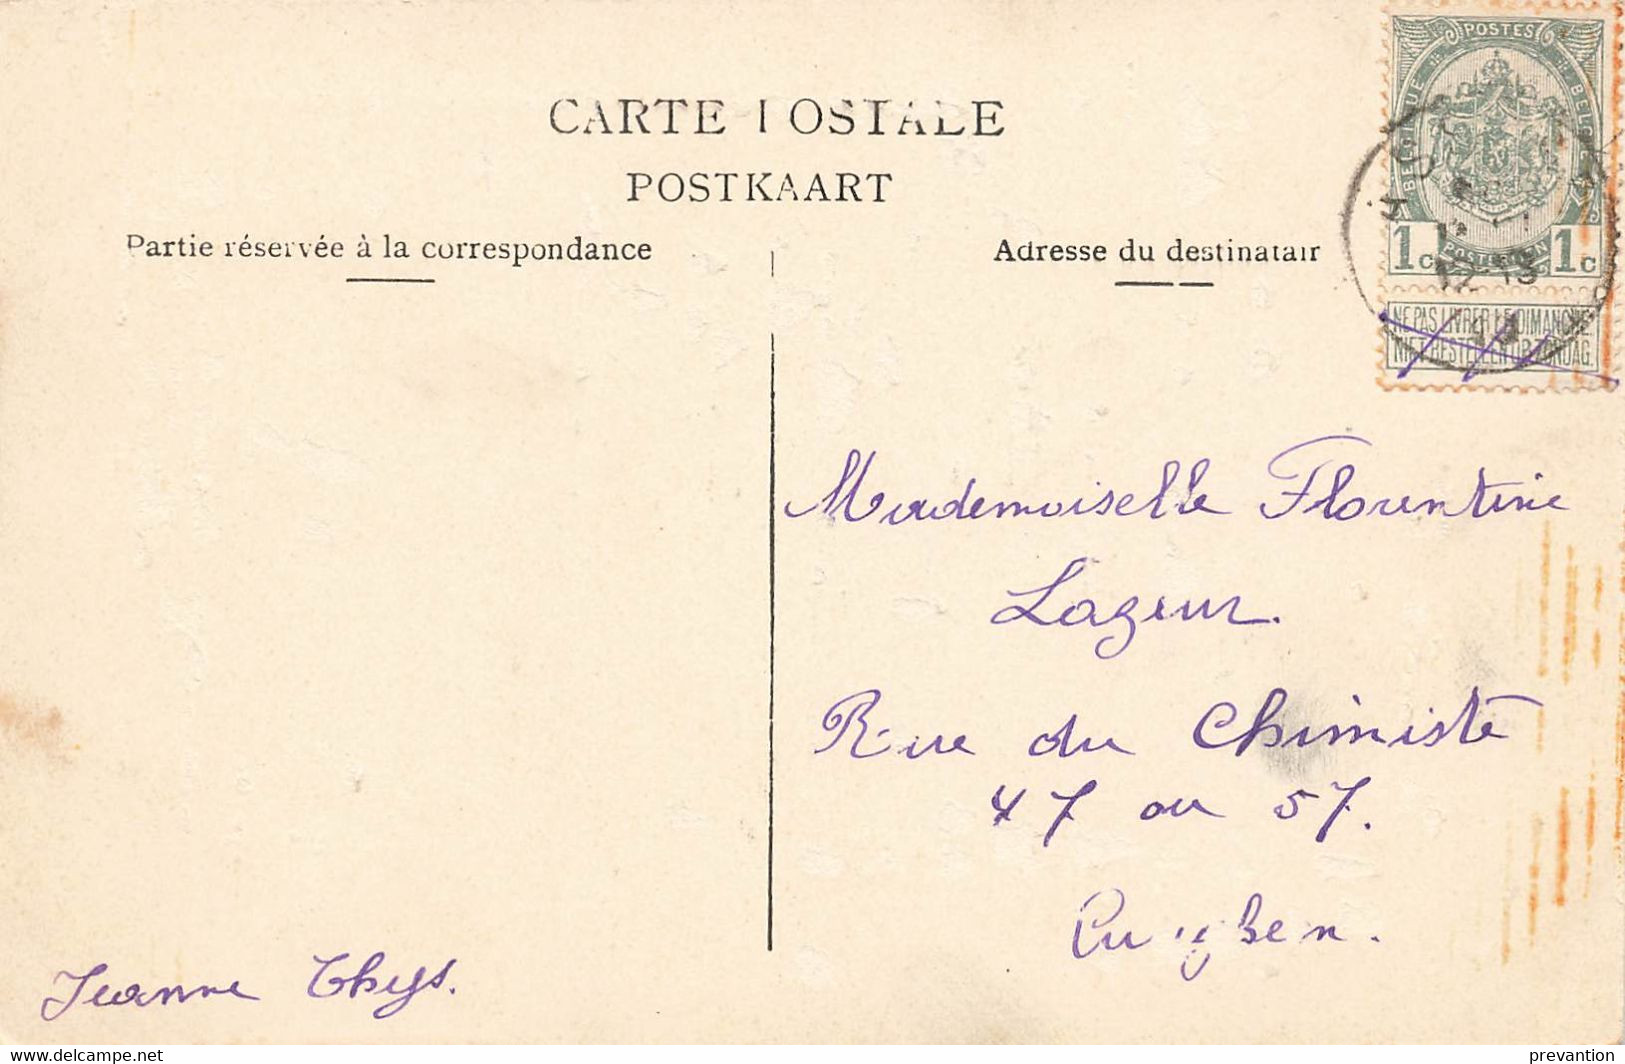 CARTE POSTALE
POSTKAART
Partie réservée à la correspondance
Adresse du destinatair
POSTES
BELGIQUE
BELGIE
1c POSTERIJEN 1c
NE PAS LIVRER LE DIMANCHE
NIET BESTELLEN OP ZONDAG.
Mademoiselle Florentine
Lageur.
Rue du Chimiste
47 ou 57.
Jeanne Thys.
www.delcampe.net
prevantion